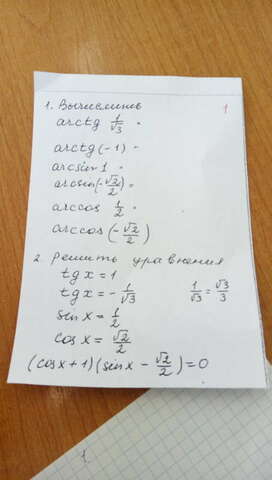 1. Вычислить 1
arctg 1/√3 =
arctg(-1) =
arcsin 1 =
arcsin(-√2/2) =
arccos 1/2 =
arccos(-√2/2)
2. Решить уравнения
tg x = 1
tg x = - 1/√3 1/√3 = √3/3
sin x = 1/2
cos x = √2/2
(cos x + 1)(sin x - √2/2) = 0
1